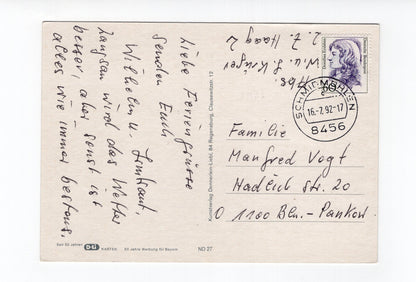 Liebe Feriengrüße
senden Euch
Wilhelm u. Irmtraut.
Langsam wird das Wetter
besser, aber sonst ist
alles wie immer bestens.
Abs.
W. u. I. Krüger
z. Z. Haag 2
SCHMIDMÜHLEN
16.-7.92-17
8456
Familie
Manfred Vogt
Hadlich str. 20
O 1100 Bln.-Pankow
Kunstverlag Demmlein-Liebl, 84 Regensburg, Clausenstr. 12
Seit 50 Jahren
KARTEN
50 Jahre Werbung für Bayern
ND 27